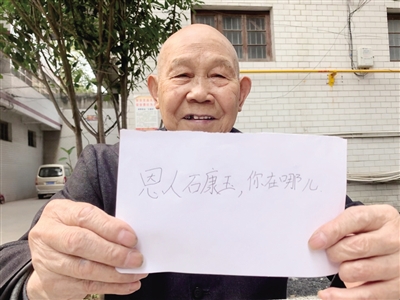 恩人石康玉,你在哪儿